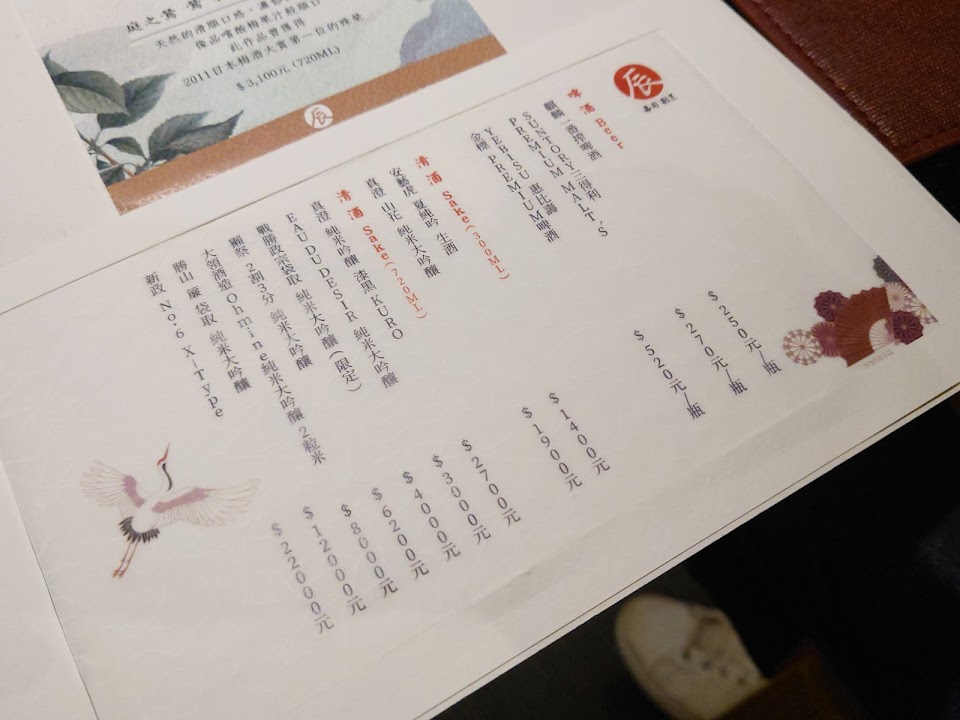 庭之鶯 鶯
天然的滑順口感，讓你
像品嚐酸梅果汁般順口
此作品曾獲得
2011日本梅酒大賞第一位的殊榮
$3,100元 (720ML)
辰
辰
壽司 割烹
啤酒 Beer
麒麟一番搾啤酒 $250元/瓶
SUNTORY三得利
PREMIUM MALT'S $270元/瓶
YEBISU 惠比壽
金標 PREMIUM啤酒 $520元/瓶
清酒 Sake(300ML)
安藝虎 夏純吟 生酒 $1400元
真澄 山花 純米大吟釀 $1900元
清酒 Sake(720ML)
真澄 純米吟釀 漆黑 KURO $2700元
EAU DU DESIR 純米大吟釀 $3000元
戰勝政宗袋取 純米大吟釀(限定) $4000元
獺祭 2割3分 純米大吟釀 $6200元
大領酒造 Ohmine 純米大吟釀 2粒米 $8000元
勝山 袋取 純米大吟釀 $12000元
新政 No.6 X-Type $22000元